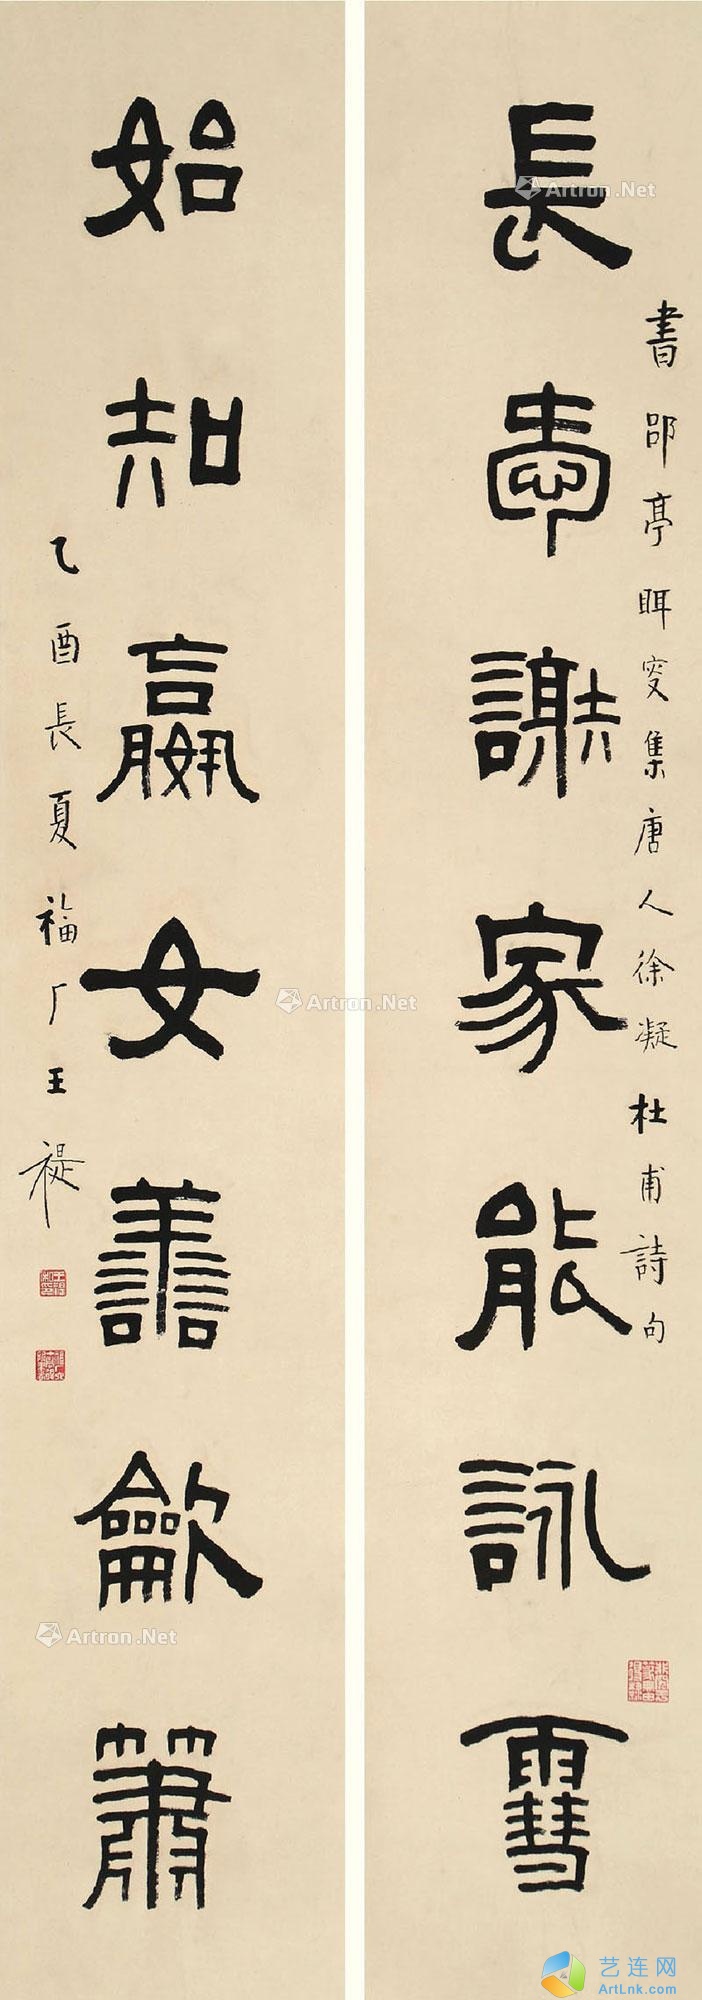 長㤅謝家能詠䨮
書郘亭眲叟集唐人徐凝杜甫詩句
始知嬴女善龡簫
乙酉長夏福厂王禔
Artron.Net
Artron.Net
Artron.Net
Artron.Net
艺连网
ArtLnk.com